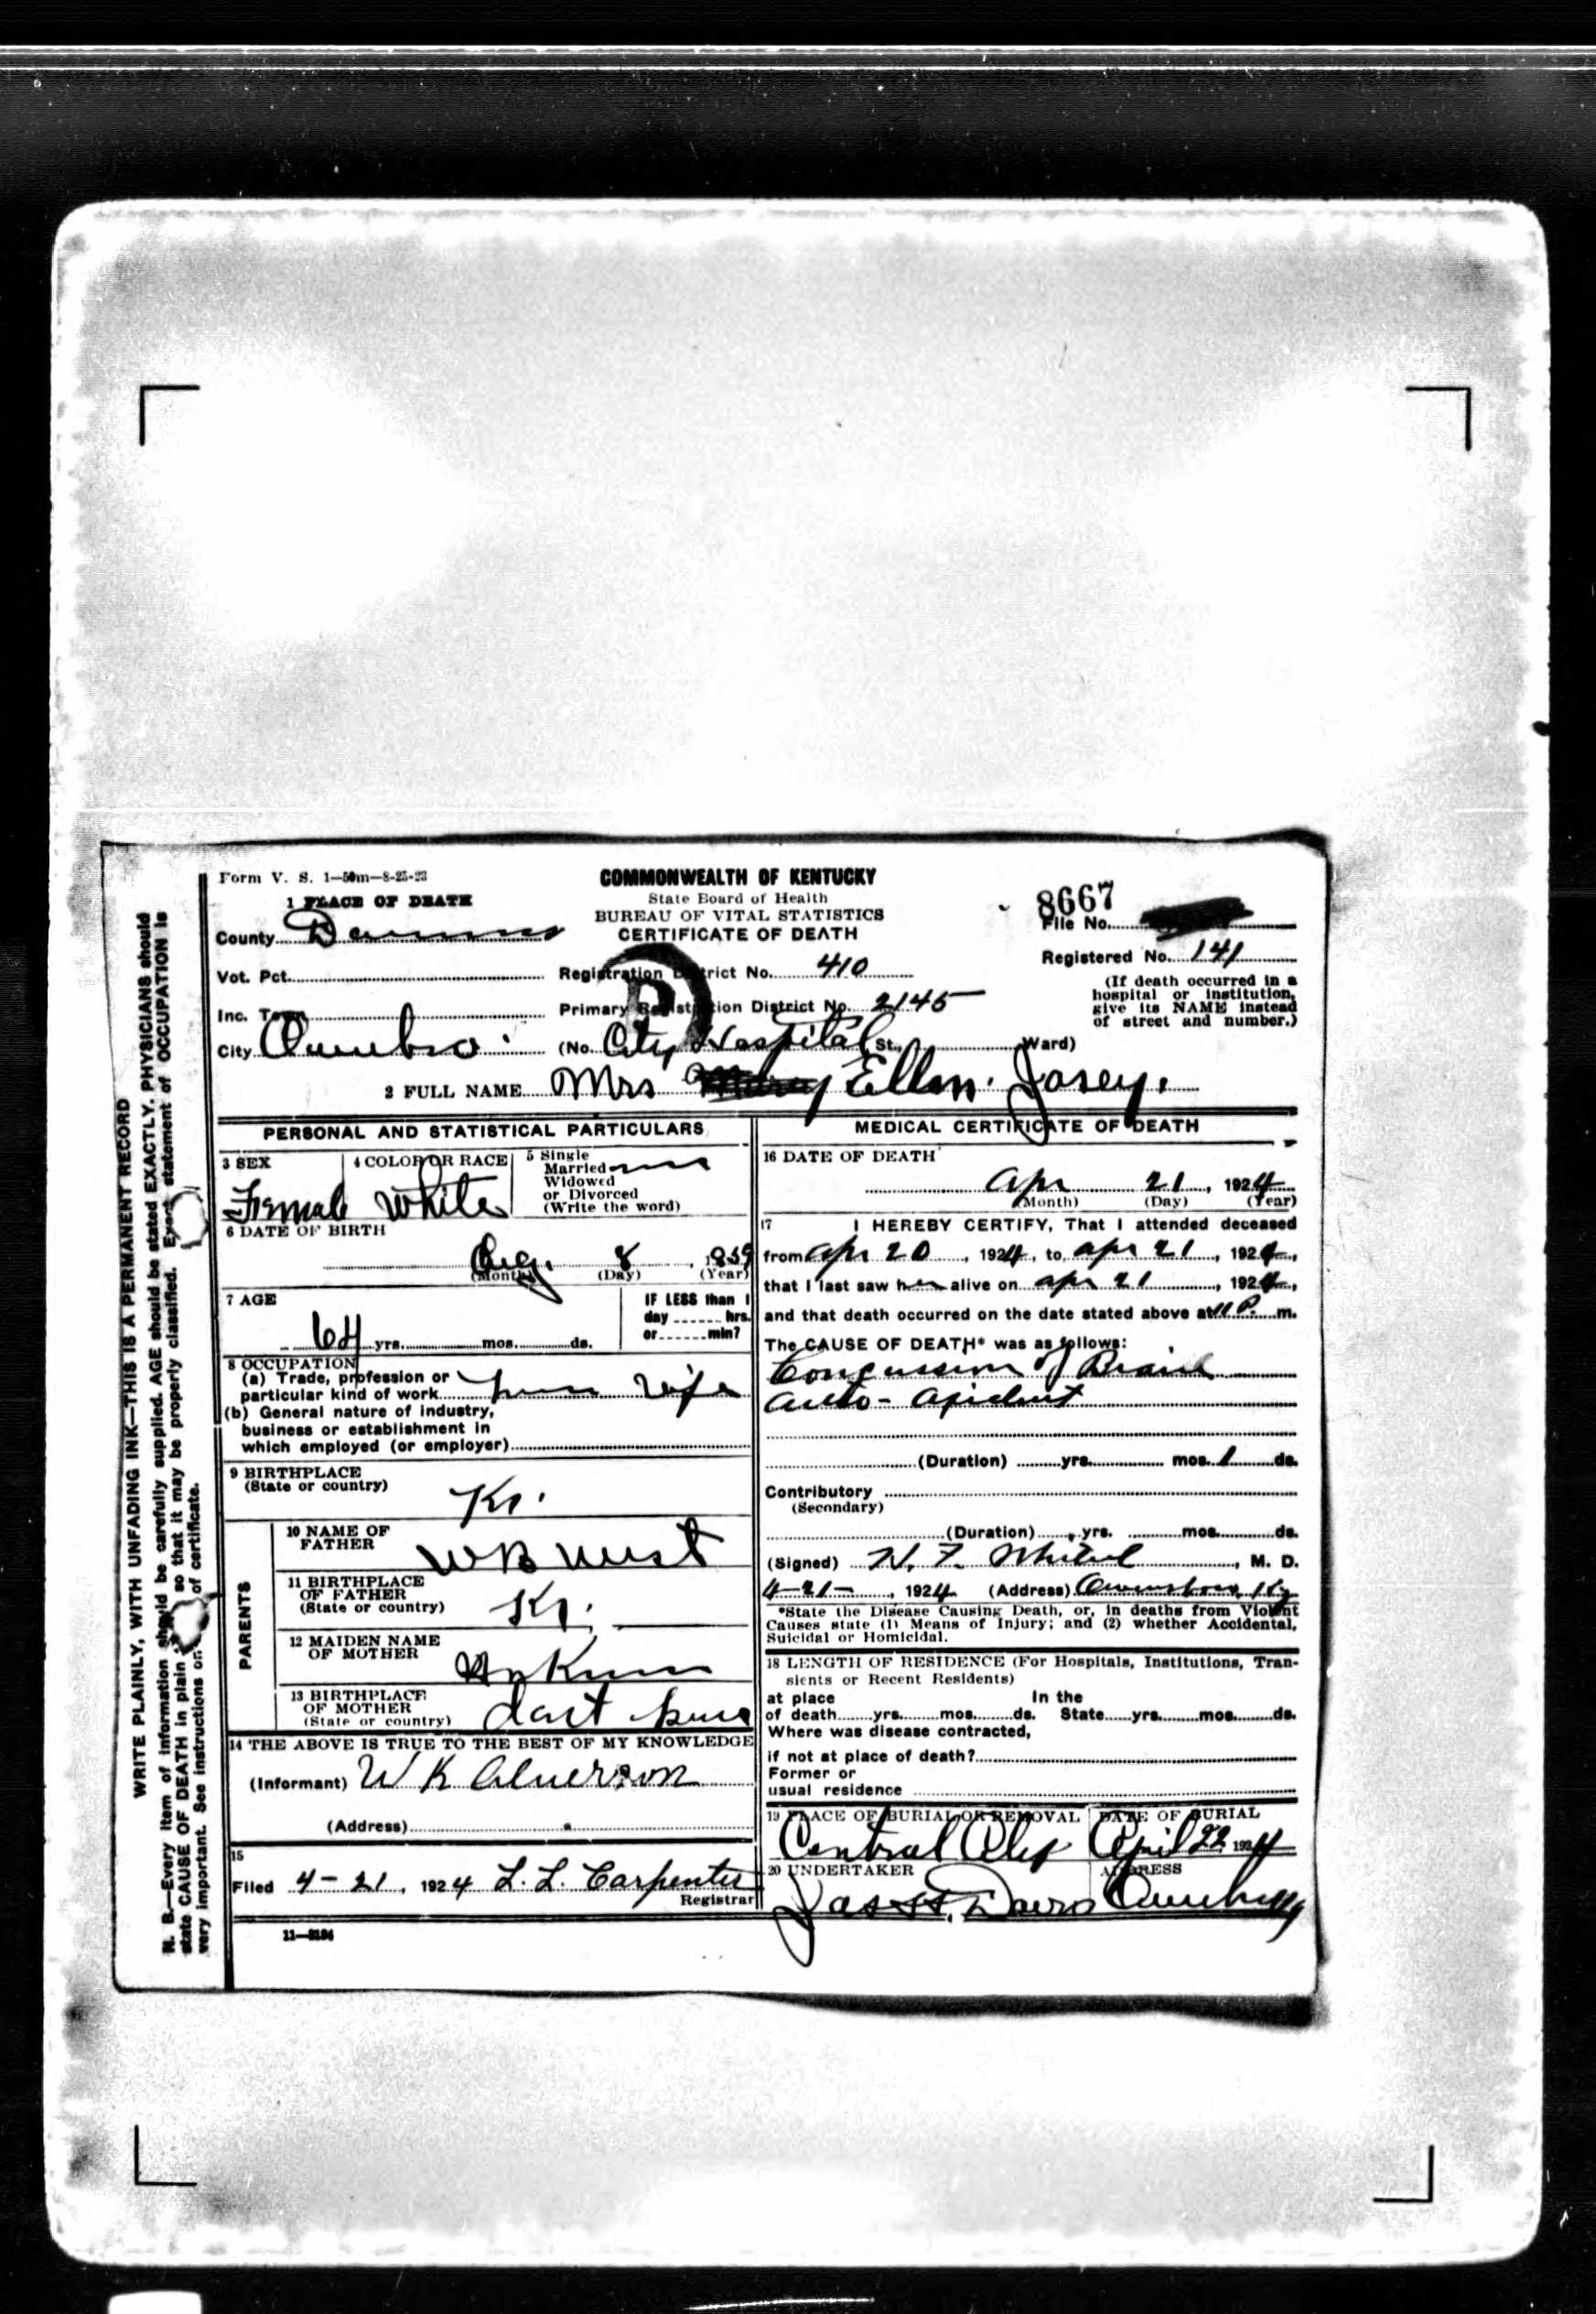 Form V. S. 1—50m—8-25-23
COMMONWEALTH OF KENTUCKY
State Board of Health
BUREAU OF VITAL STATISTICS
CERTIFICATE OF DEATH
8667
File No.
Registered No. 141
(If death occurred in a
hospital or institution,
give its NAME instead
of street and number.)
1 PLACE OF DEATH
County Daviess
Vot. Pct.
Registration District No. 410
Inc. Town
Primary Registration District No. 2145
City (No. City Hospital St., Ward)
2 FULL NAME Mrs Ellen Josey.
PERSONAL AND STATISTICAL PARTICULARS
3 SEX
Female
4 COLOR OR RACE
White
5 Single
Married
Widowed
or Divorced
(Write the word)
6 DATE OF BIRTH
Aug. 8, 1859
(Month) (Day) (Year)
7 AGE
64 yrs. mos. ds.
IF LESS than 1
day hrs.
or min?
8 OCCUPATION
(a) Trade, profession or
particular kind of work wife
(b) General nature of industry,
business or establishment in
which employed (or employer)
9 BIRTHPLACE
(State or country)
Ky.
PARENTS
10 NAME OF
FATHER
W B West
11 BIRTHPLACE
OF FATHER
(State or country)
Ky.
12 MAIDEN NAME
OF MOTHER
13 BIRTHPLACE
OF MOTHER
(State or country)
14 THE ABOVE IS TRUE TO THE BEST OF MY KNOWLEDGE
(Informant) W K Alverson
(Address)
15
Filed 4-21, 1924 L. L. Carpenter
Registrar
11—3184
MEDICAL CERTIFICATE OF DEATH
16 DATE OF DEATH
Apr 21, 1924
(Month) (Day) (Year)
17 I HEREBY CERTIFY, That I attended deceased
from Apr 20, 1924, to Apr 21, 1924,
that I last saw her alive on Apr 21, 1924,
and that death occurred on the date stated above at 11 P. m.
The CAUSE OF DEATH* was as follows:
Concussion of Brain
auto-
(Duration) yrs. mos. 1 ds.
Contributory
(Secondary)
(Duration) yrs. mos. ds.
(Signed) M. D.
4-21-, 1924 (Address) Owensboro, Ky
*State the Disease Causing Death, or, in deaths from Violent
Causes state (1) Means of Injury; and (2) whether Accidental,
Suicidal or Homicidal.
18 LENGTH OF RESIDENCE (For Hospitals, Institutions, Tran-
sients or Recent Residents)
at place In the
of death yrs. mos. ds. State yrs. mos. ds.
Where was disease contracted,
if not at place of death?
Former or
usual residence
19 PLACE OF BURIAL OR REMOVAL
Central City
DATE OF BURIAL
April 22 1924
20 UNDERTAKER
Jas H. Davis
ADDRESS
WRITE PLAINLY, WITH UNFADING INK—THIS IS A PERMANENT RECORD
N. B.—Every item of information should be carefully supplied. AGE should be stated EXACTLY. PHYSICIANS should
state CAUSE OF DEATH in plain so that it may be properly classified. Exact statement of OCCUPATION is
very important. See instructions on of certificate.